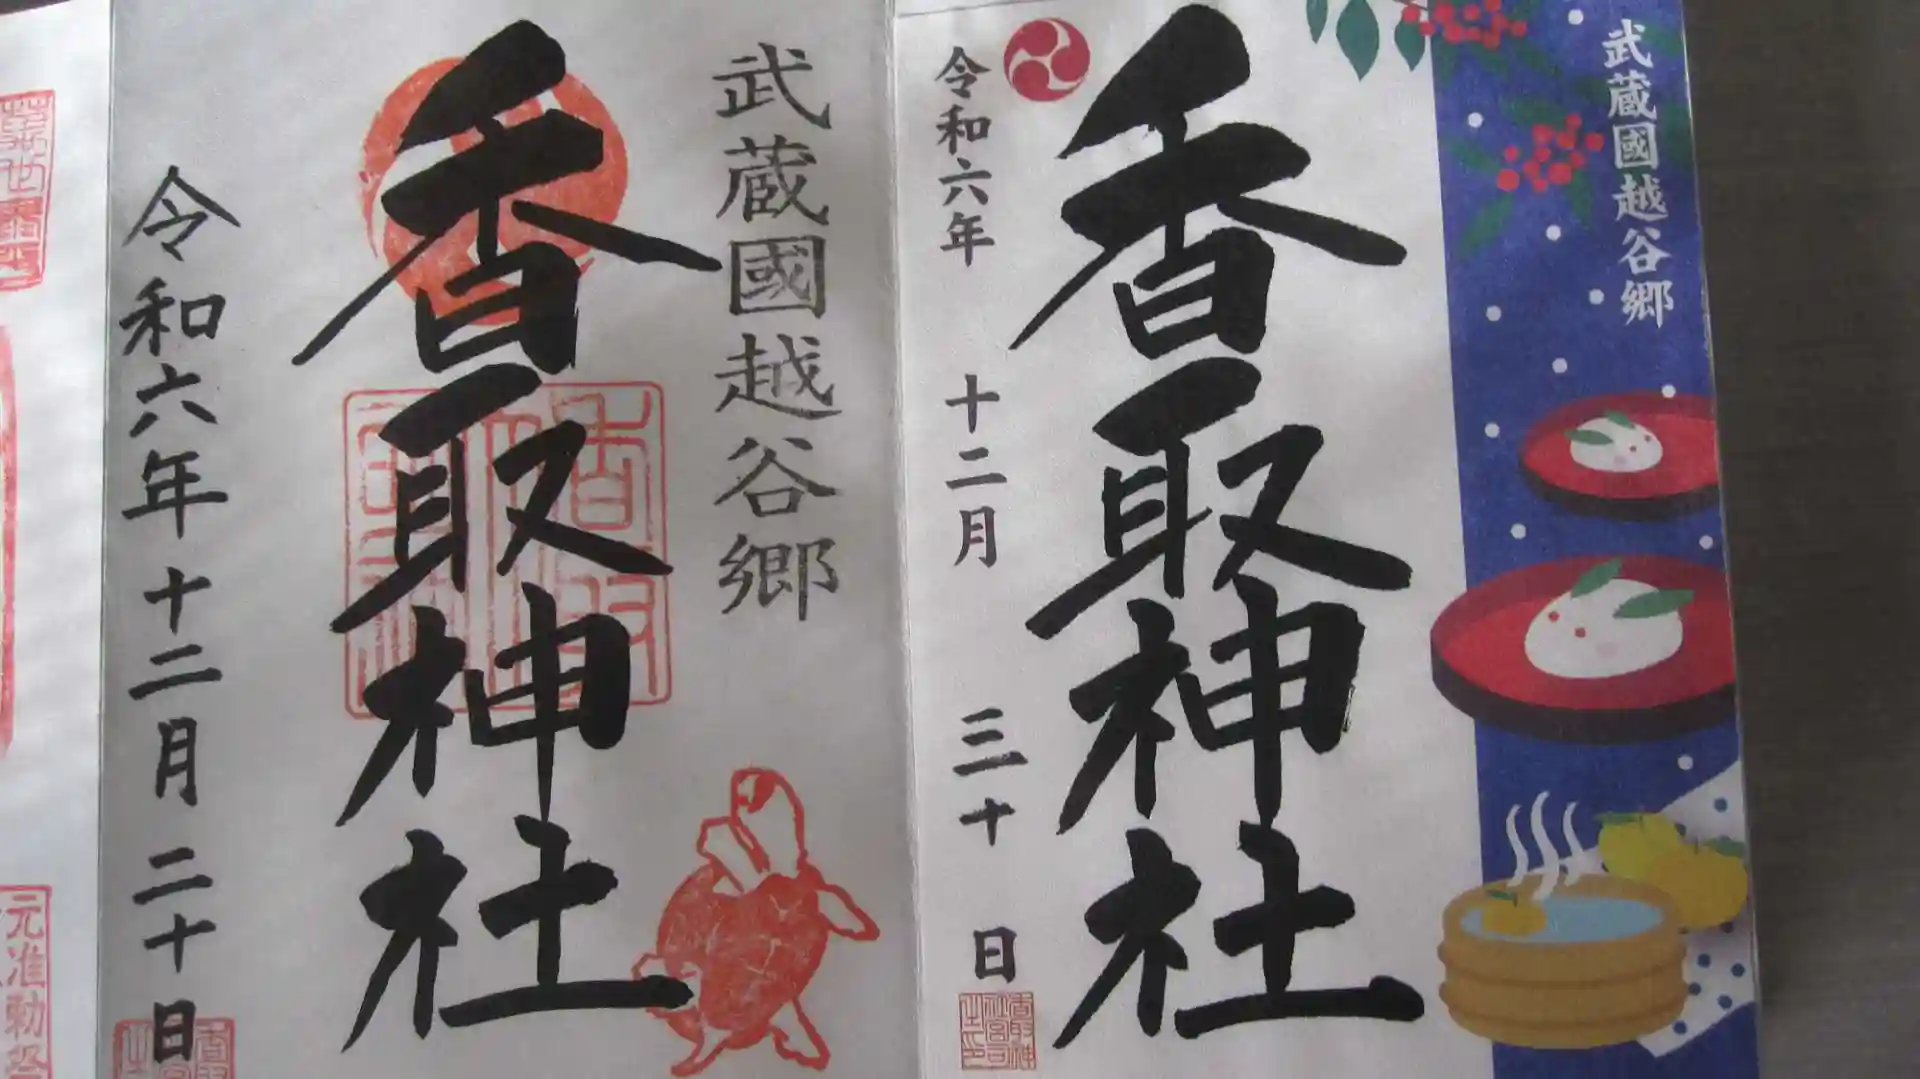 武蔵國越谷郷
香取神社
令和六年 十二月 三十 日
香取神
社宮司
之印
武蔵國越谷郷
香取神社
令和六年十二月二十日
元准勅祭